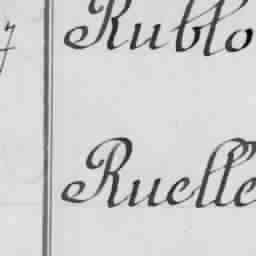 7 Rublo
Ruelle